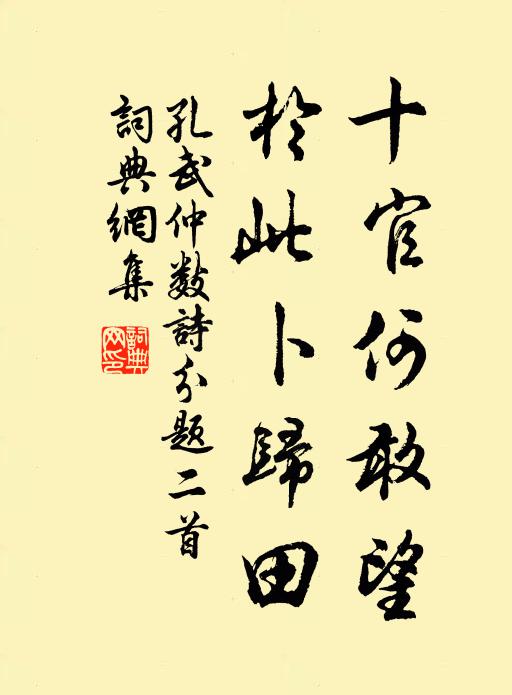 十官何敢望
於此卜歸田
孔武仲數詩分題二首
詞典網集
詞典網印